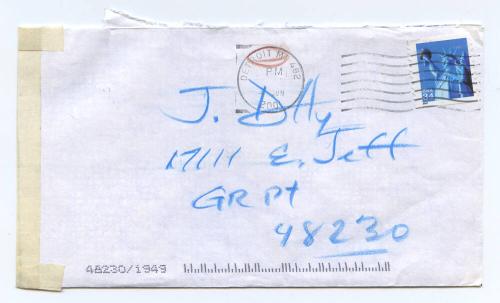 DETROIT MI 482
PM
JUN
200
USA 34
J. Dilly
17111 E. Jeff
GR Pt
48230
48230/1949